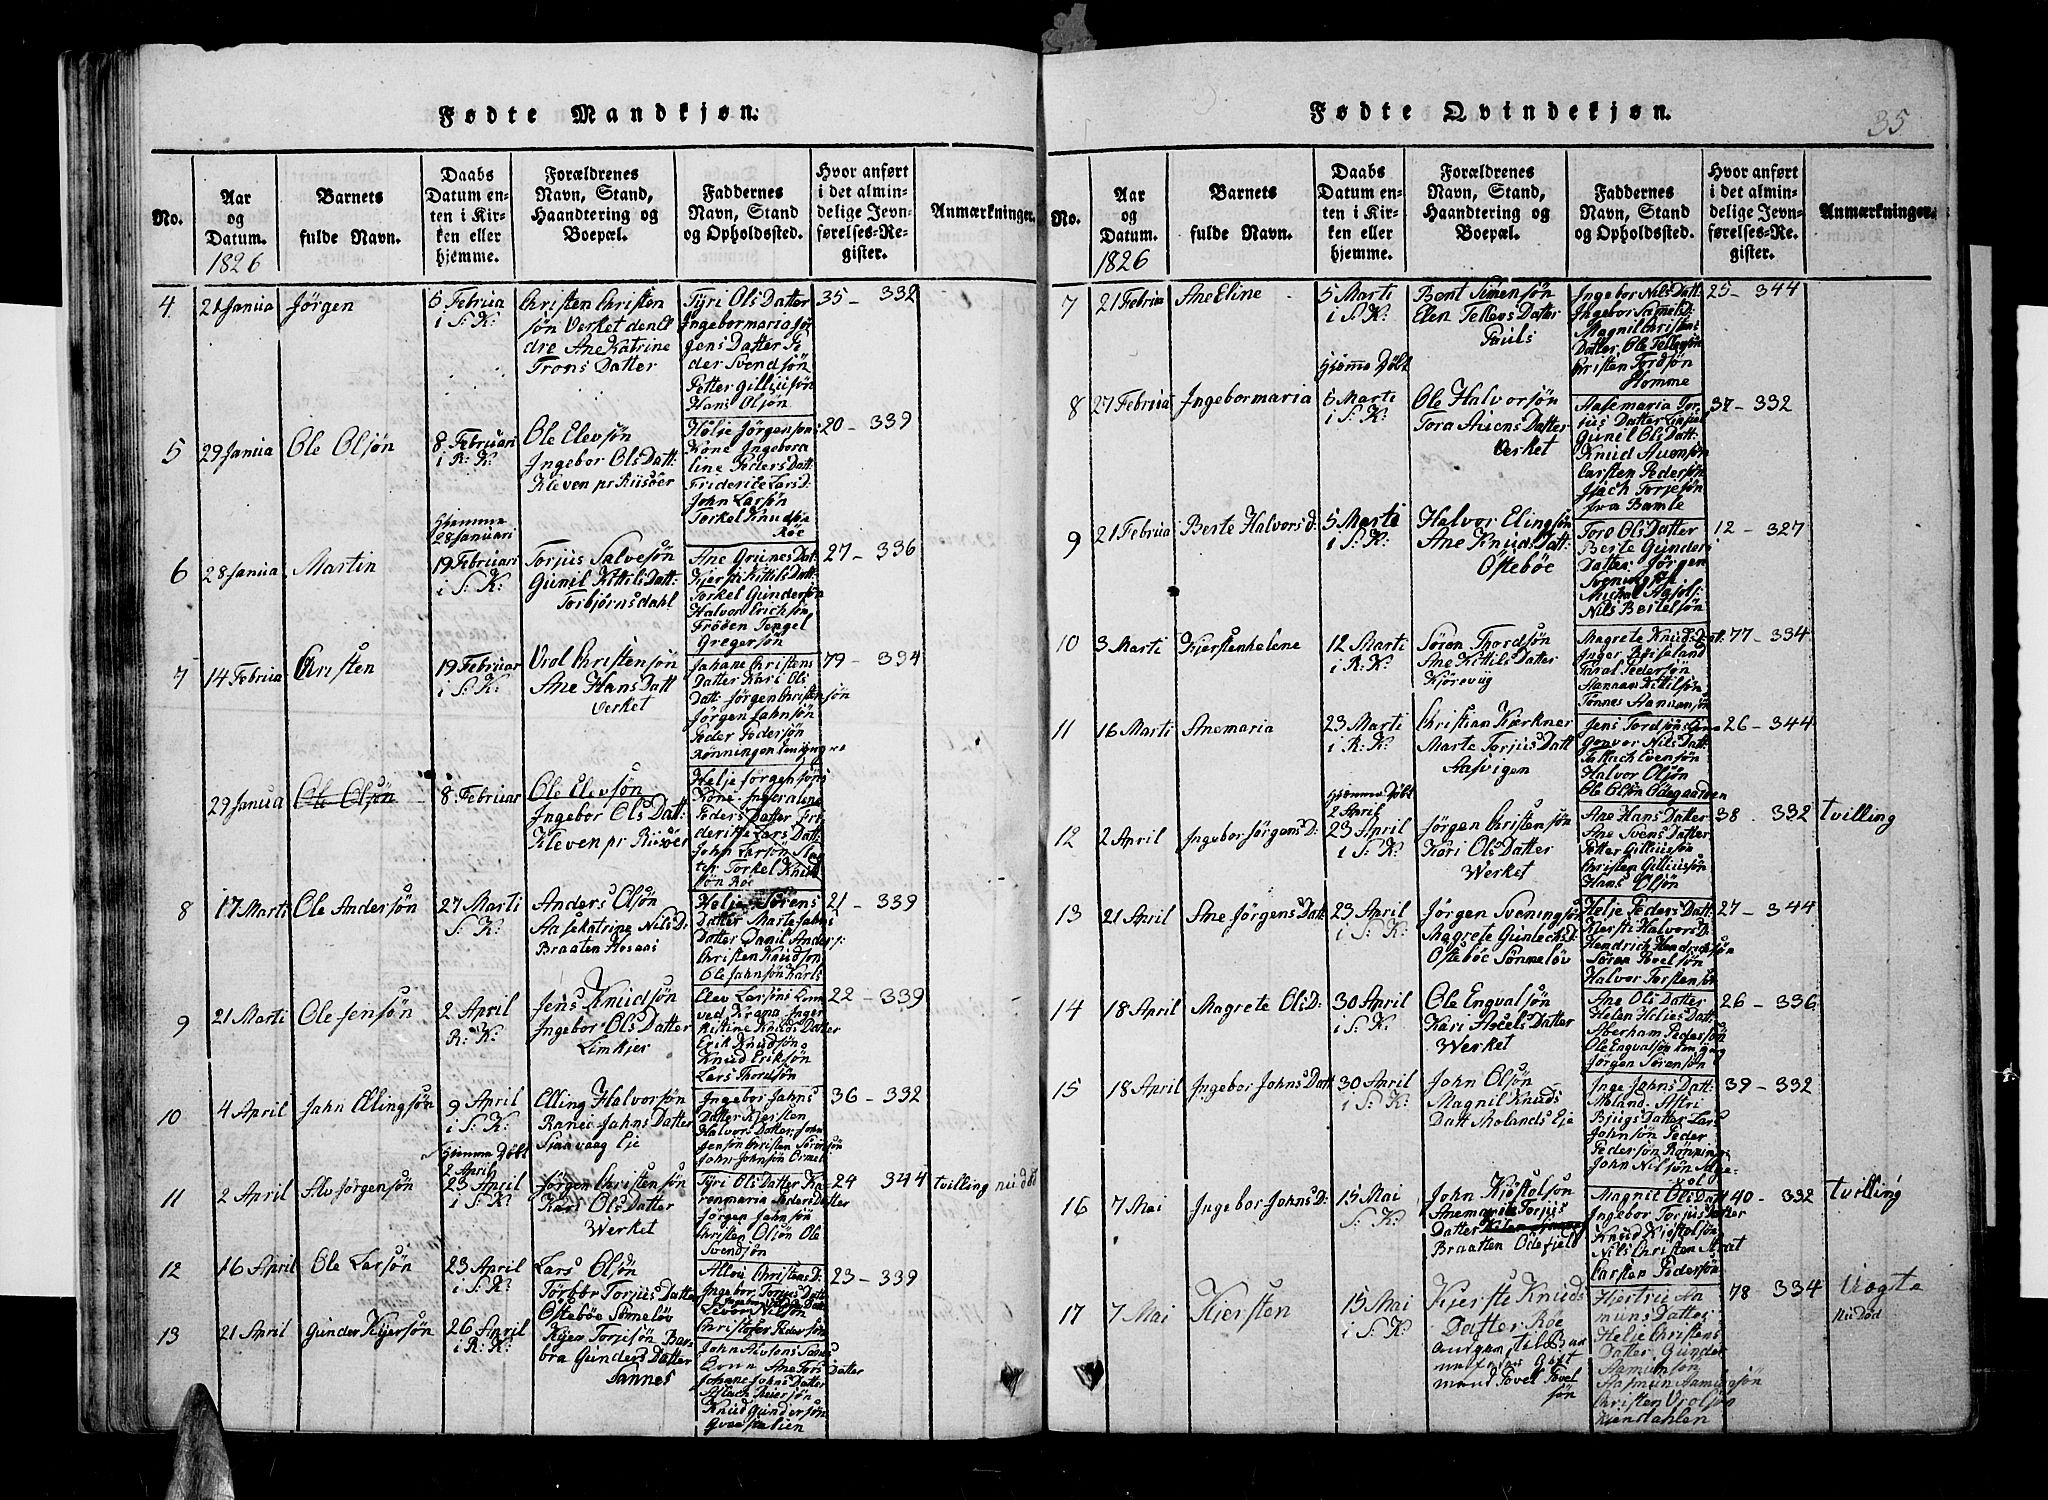 Fødte Mandkjøn.
No.
Aar
og
Datum.
1826
Barnets
fulde Navn.
Daabs
Datum en-
ten i Kir-
ken eller
hjemme.
Forældrenes
Navn, Stand,
Haandtering og
Boepæl.
Faddernes
Navn, Stand
og Opholdssted.
Hvor anført
i det almin-
delige Jevn-
førelses-Re-
gister.
Anmærkninger.
4
21 Janua
Jörgen
5 Februa
i S: K:
Christen Christen
sön Verket den El
dre Ane Katrine
Trons Datter
Tyri Ols Datter
Ingebormaria Jör
gens Datter Pe
der Svendsön
Petter Gilliusön
Hans Olsön
35 - 332
5
29 Janua
Ole Olsön
8 Februari
i R: K:
Ole Elevsön
Ingebor Ols Datt:
Kleven pr Riisöer
Helje Jörgensöns
Kone Ingebora
line Peders Datt:
Friderike Lars D:
John Larsön
Torkel Knudsön
Röe
20 - 339
6
28 Janua
Martin
Hjemme
28 Januari
19 Februari
i S: K:
Torjus Salvesön
Gunil Kittils Datt:
Torbjörnsdahl
Ane Grunes Dat:
Kjersti Kittils Datt:
Torkel Gundersön
Halvor Erichsön
Fröden Tengel
Gregersön
27 - 336
7
14 Februa
Christen
19 Februar
i S: K:
Vrol Christensön
Ane Hans Datt
Verket
Johane Christens
Datter Kari Ols
Datt: Jörgen Christensön
Jörgen Jahnsön
Peder Pedersön
Rönningen den yngre
79 - 334
29 Janua
Ole Olsön
8 Februar
Ole Elevsön
Ingebor Ols Datt:
Kleven pr Riisöer
Helje Jörgensöns
Kone Ingeraline
Peders Datter Fri
derikke Lars Datt:
John Larsön
Torkel Knud
sön Röe
8
17 Marti
Ole Andersön
27 Marti
S: K:
Anders Olsön
Aasekatrine Nils D:
Braaten Hosaas
Helje Sörens
Datter Marte Jahns
Datter Danil Anders:
Christen Knudsön
Ole Jahnsön Karls
21 - 339
9
21 Marti
Ole Jensön
2 April
R: K:
Jens Knudsön
Ingebor Ols Datter
Limkjer
Elev Larsöns
ved Kragerö Inger
Kistine Knuds Datter
Erik Knudsön
Knud Eriksön
Lars Thordsön
22 - 339
10
4 April
Jahn Ellingsön
9 April
i S: K:
Elling Halvorsön
Ranei Jahns Datter
Sjaavaag Eje
Ingebor Jahns
Datter Kjersten
Halvors Datter, John
Jensön Christen Sörensön
John Johnsön
36 - 332
11
2 April
Alv Jörgensön
Hjemme Döbt
2 April
23 April
i S: K:
Jörgen Christensön
Kari Ols Datter
Werket
Tyri Ols Datter Ka
renmaria Peders Datter
Jörgen Jahnsön
Christen Olsön Ole
Svendsön
24 344
tvilling nu död
12
16 April
Ole Larsön
23 April
i S: K:
Lars Olsön
Torbor Torjus Datter
Östeböe Sönneløv
Christens D:
Ingebor Torjus Datt
Levor Nilsön
Christofer Pedersön
23 - 339
13
21 April
Gunder Kijersön
26 April
i R: K:
Kijer Torjesön Bar-
bra Gunders Datter
Sannes
John
Ane Tors Datter
Johane Johns Datter
Aslach Keiersön
Knud Gundersön
Fødte Qvindekjøn.
35
No.
Aar
og
Datum.
1826
Barnets
fulde Navn.
Daabs
Datum en-
ten i Kir-
ken eller
hjemme.
Forældrenes
Navn, Stand,
Haandtering og
Boepæl.
Faddernes
Navn, Stand
og Opholdssted.
Hvor anført
i det almin-
delige Jevn-
førelses-Re-
gister.
Anmærkninger.
7
21 Februa
Ane Eline
5 Marti
i S: K:
Bent Simensön
Elen Tellevs Datter
Pauls
Ingebor Nils Datt:
Ingebor Samels D:
Magnil Christens
Datter Ole Tellefsön
Christen Tordsön
Homme
25 - 344
8
27 Februa
Ingebormaria
Hjemme Döbt
5 Marti
i S: K:
Ole Halvorsön
Tora Auens Datter
Verket
Aasemaria Tor
jus Datter
Gunil Ols Datt:
Knud Auensön
Carsten Pedersön
Isach Torjesön
fra Bamle
37 - 332
9
21 Februa
Berte Halvors D:
5 Marti
i S: K:
Halvor Elingsön
Ane Knuds Datt:
Östeböe
Toro Ols Datter
Berte Gunders
Datter Jörgen
Svenungsön
Michal
Nils Bertelsön
12 - 327
10
3 Marti
Kjerstenhelene
12 Marti
i R: K:
Sören Thordsön
Ane Kittils Datter
Kjörevig
Magrete Knuds Datt.
Inger Röiseland
Pedersön
Hannan Kittilsön
Tönnes Hansensön
77 - 334
11
16 Marti
Anemaria
23 Marti
i R: K:
Christian Kierkner
Marte Torjus Datt
Aasvigen
Jens Tordsön
Gonvor Nils Datt:
Tallach Evensön
Halvor Olsön
Ole Olsön Ödegaarden
26 - 344
12
2 April
Ingebor Jörgens D:
Hjemme Döbt
2 April
23 April
i S: K:
Jörgen Christensön
Kari Ols Datter
Werket
Ane Hans Datter
Ane Svens Datter
Petter Gilliusön
Christen Gilliusön
Hans Olsön
38 - 332
tvilling
13
21 April
Ane Jörgens Datt
23 April
i S: K:
Jörgen Sveningsön
Magrete Gunlechs D:
Östeböe Sönneløv
Helje Peders Datt:
Kjersti Halvors D:
Hendrich Hendrichsön
Sören Povelsön
Halvor Torstensön
27 - 344
14
18 April
Magrete Ols D:
30 April
i S: K:
Ole Engvalsön
Kari Axels Datter
Werket
Ane Ols Datter
Helen Helies Datt:
Aberham Pedersön
Ole Engvalsön den yng
Jörgen Sörensön
26 - 336
15
18 April
Ingebor Johns Datt
30 April
i S: K:
John Olsön
Magnil Knuds
Datt Aolands Eje
Inge Jahns Datt:
Aoland. Astri
Brujs Datter Lars
Johnsön Peder
Pedersön Rönning
John Nilsön
39 - 332
16
7 Mai
Ingebor Johns D:
15 Mai
S: K:
John Kjöstolsön
Anemarie Torjus
Datter
Braatten Odefjeld
Magnil Ols Datt
Ingebor Torjus Datter
Knud Kjöstolsön
Nils Christen
Carsten Pedersön
40 - 332
tvilling
17
7 Mai
Kjersten
15 Mai
i S: K:
Kjersti Knuds
Datter Röe
mand Povel Povel
sön
Hjertru An
muns Datter
Helje Christens
Datter Gunder
Aamunsön
Aasmun Aamunsön
Christen Vrolsön
Kjendahlen
78 334
Uægte
nu död